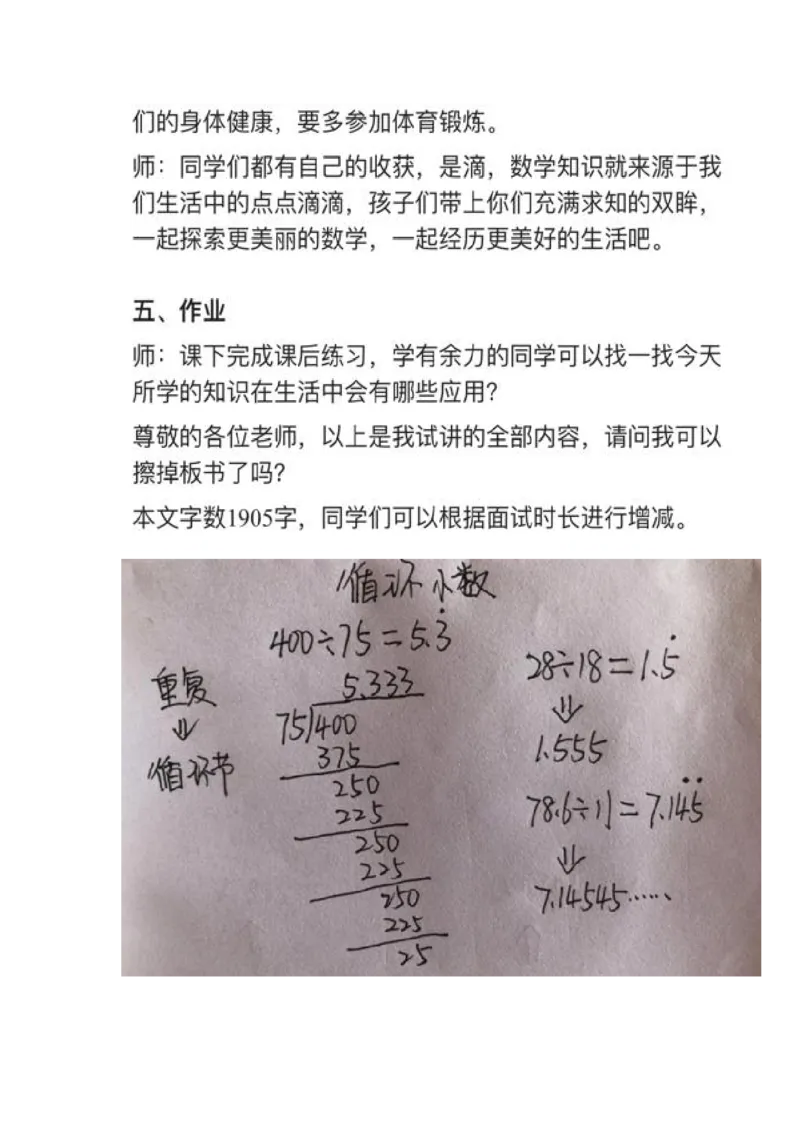 们的身体健康，要多参加体育锻炼。
师：同学们都有自己的收获，是滴，数学知识就来源于我
们生活中的点点滴滴，孩子们带上你们充满求知的双眸，
一起探索更美丽的数学，一起经历更美好的生活吧。
五、作业
师：课下完成课后练习，学有余力的同学可以找一找今天
所学的知识在生活中会有哪些应用？
尊敬的各位老师，以上是我试讲的全部内容，请问我可以
擦掉板书了吗？
本文字数1905字，同学们可以根据面试时长进行增减。
循环小数
400÷75=5.3̇
重复
⇓
循环节
5.333
75)400
375
250
225
250
225
250
225
25
28÷18=1.5̇
⇓
1.555
78.6÷11=7.14̇5̇
⇓
7.14545……